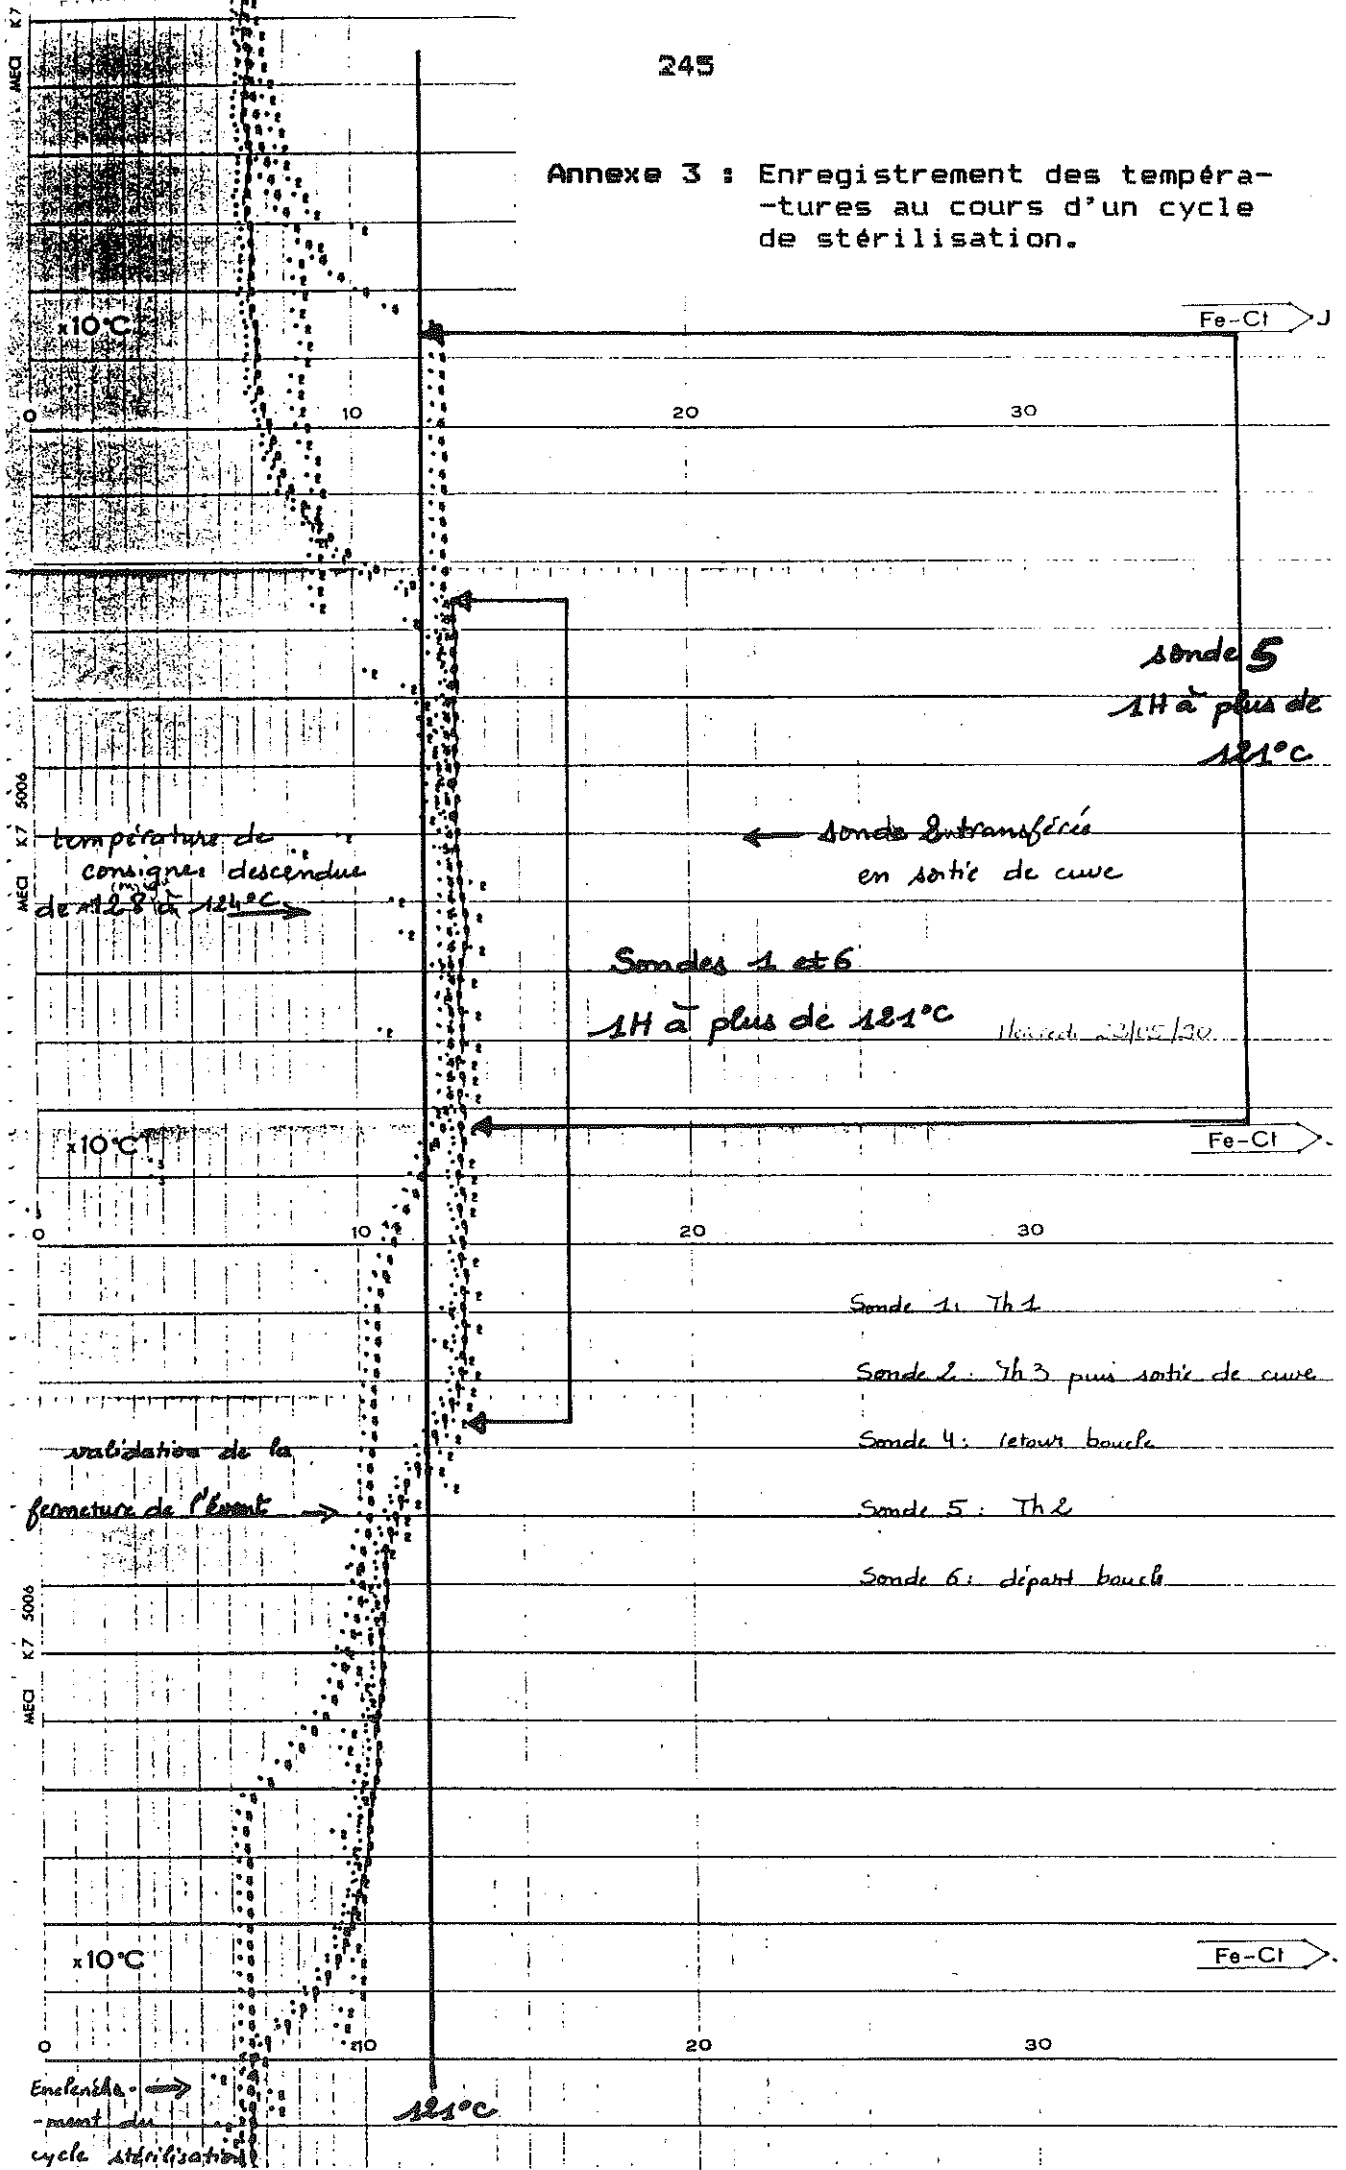 MECI K7
245
Annexe 3 : Enregistrement des tempéra-
-tures au cours d'un cycle
de stérilisation.
Fe-Ct J
x10°C
0 10 20 30
sonde 5
1H à plus de
121°C
MECI K7 5006
température de
consigne descendue
de 128 à 124°C
sonde 2 transférés
en sortie de cuve
Sondes 1 et 6
1H à plus de 121°C
23/05/90
Fe-Ct
x10°C
0 10 20 30
Sonde 1: Th 1
Sonde 2: Th 3 puis sortie de cuve
Sonde 4: retour boucle
validation de la
fermeture de l'évent
Sonde 5: Th 2
Sonde 6: départ boucle
MECI K7 5006
x10°C
Fe-Ct
0 10 20 30
Enclenche-
-ment du
cycle stérilisation
121°C